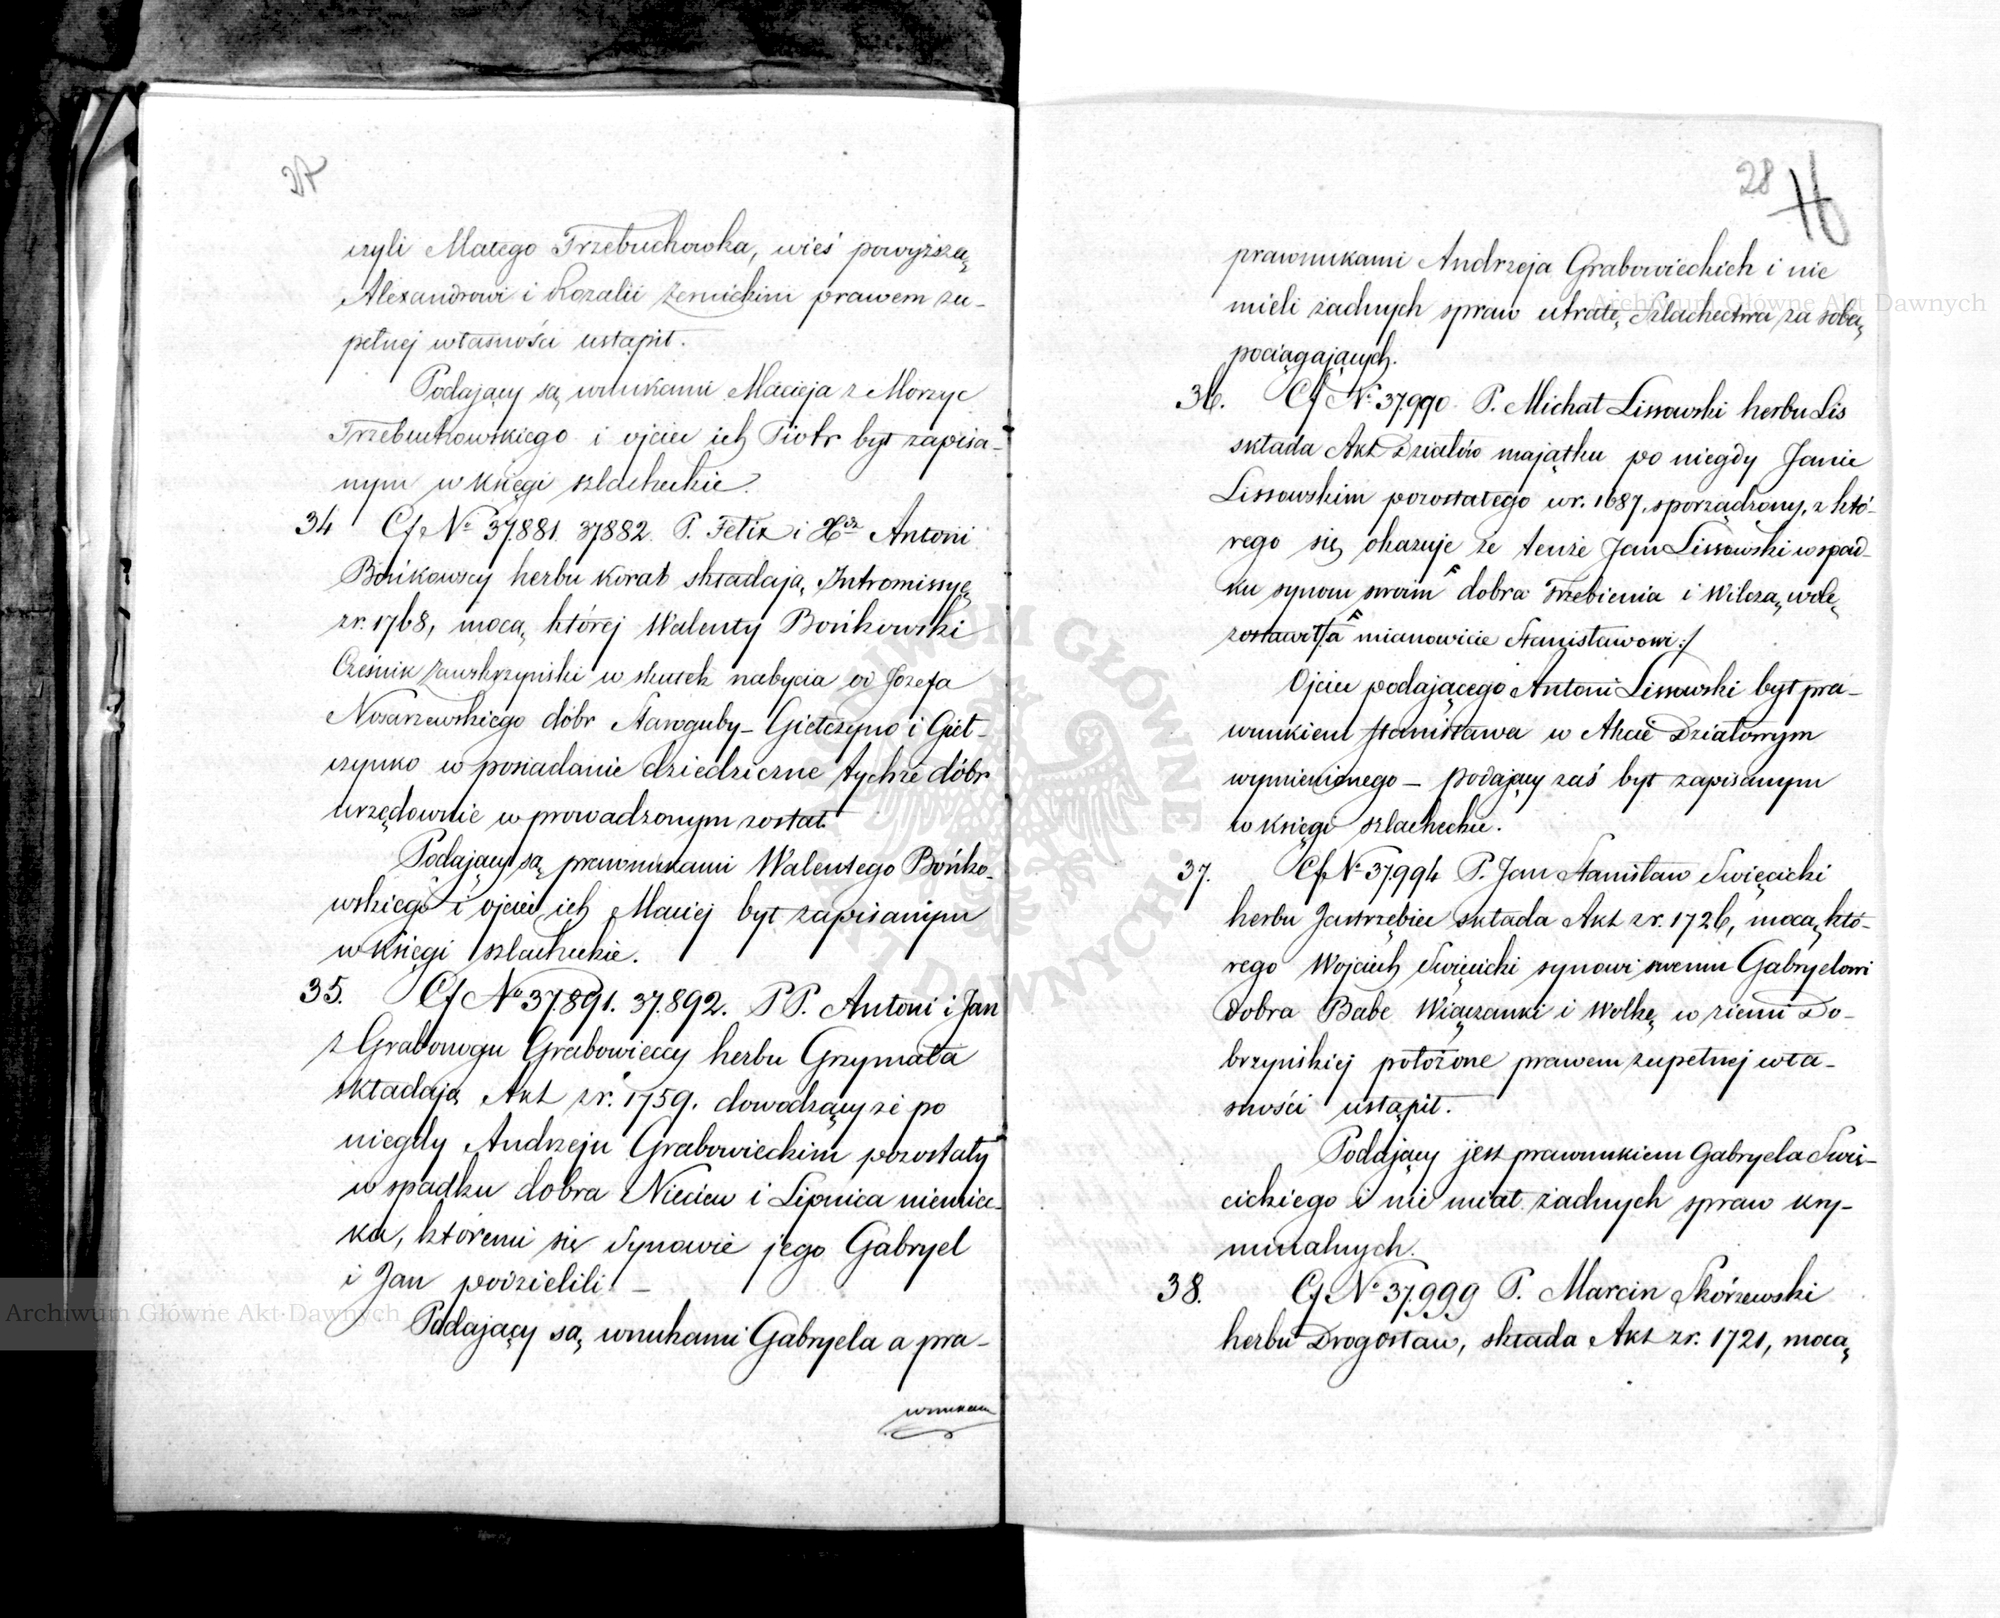 27
czyli Małego Trzebuchowka, wieś powyższą
Alexandrowi i Rozalii Żernickim prawem zu-
pełnej własności ustąpił.
Podający są wnukami Macieja z Morzyc
Trzebuchowskiego i ojciec ich Piotr był zapisa-
nym w księgi szlacheckie.
34 Cf No 37.881. 37882. P. Felix i Xdz Antoni
Bońkowscy herbu Korab składają Intromissyę
z r. 1768, mocą której Walenty Bońkowski
Cześnik Zawskrzyński w skutek nabycia od Józefa
Nosarzewskiego dóbr Staroguby - Giełczyno i Gieł-
czynko w posiadanie dziedziczne tychże dóbr
urzędownie wprowadzonym został.
Podający są prawnukami Walentego Bońko-
wskiego i ojciec ich Maciej był zapisanym
w księgi szlacheckie.
35. Cf No 37.891. 37.892. PP. Antoni i Jan
z Grabonogu Grabowieccy herbu Grzymała
składają Akt z r. 1759. dowodzący że po
niegdy Andrzeju Grabowieckim pozostały
w spadku dobra Nieciew i Lipnica niemiec-
ka, któremi się Synowie jego Gabryel
i Jan podzielili. -
Podający są wnukami Gabryela a pra-
wnukam
28
prawnukami Andrzeja Grabowieckich i nie
mieli żadnych spraw utratę Szlachectwa za sobą
pociągających.
36. Cf No 37.990. P. Michał Lissowski herbu Lis
składa Akt Działów majątku po niegdy Janie
Lissowskim pozostałego w r. 1687. sporządzony, z któ-
rego się okazuje że tenże Jan Lissowski w spad-
ku synom swoim dobra Trzebienia i Wilczą wolę
zostawił /:a mianowicie Stanisławowi:/
Ojciec podającego Antoni Lissowski był pra-
wnukiem Stanisława w Akcie Działowym
wymienionego - podający zaś był zapisanym
w księgi szlacheckie.
37. Cf No 37.994 P. Jan Stanisław Swięcicki
herbu Jastrzębiec składa Akt z r. 1726, mocą któ-
rego Wojciech Swięcicki synowi swemu Gabryelowi
dobra Babe Wiączanki i Wolkę w ziemi Do-
brzyńskiej położone prawem zupełnej wła-
sności ustąpił.
Podający jest prawnukiem Gabryela Swię-
cickiego i nie miał żadnych spraw kry-
minalnych.
38. Cf No 37.999 P. Marcin Skórzewski
herbu Drogosław, składa Akt z r. 1721, mocą
Archiwum Główne Akt Dawnych
Archiwum Główne Akt Dawnych
ARCHIWUM GŁÓWNE AKT DAWNYCH